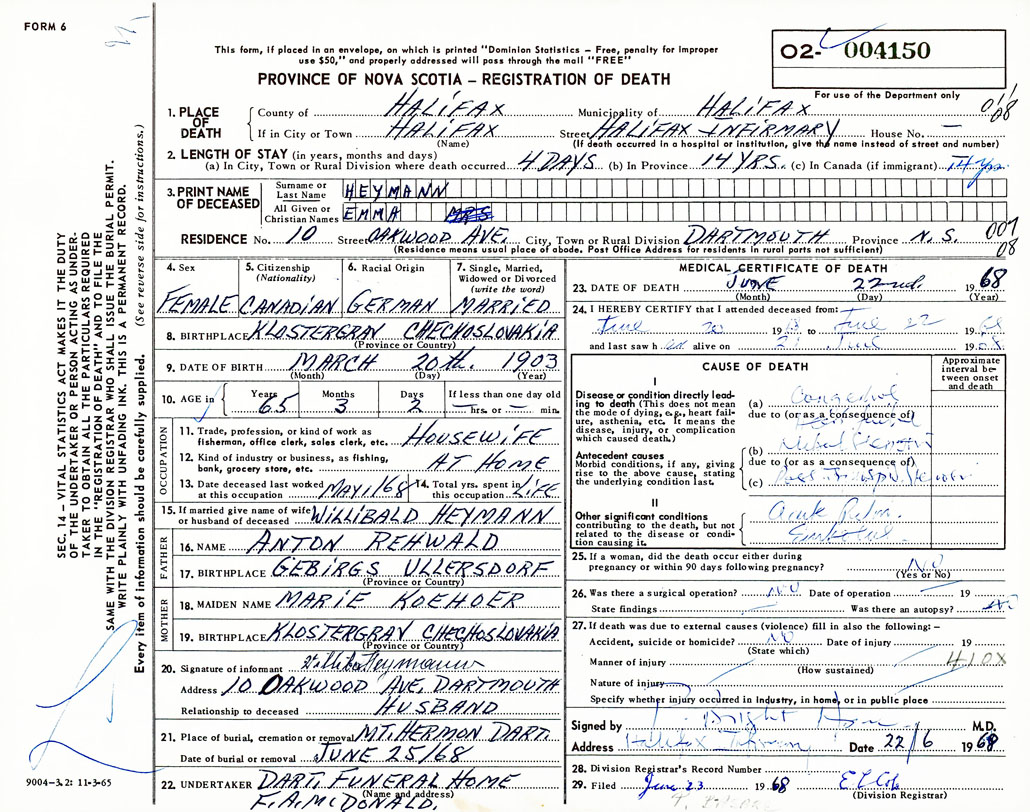 FORM 6
This form, if placed in an envelope, on which is printed "Dominion Statistics – Free, penalty for improper
use $50," and properly addressed will pass through the mail "FREE"
PROVINCE OF NOVA SCOTIA – REGISTRATION OF DEATH
02- 004150
For use of the Department only
SEC. 14 – VITAL STATISTICS ACT MAKES IT THE DUTY
OF THE UNDERTAKER OR PERSON ACTING AS UNDER-
TAKER TO OBTAIN ALL THE PARTICULARS REQUIRED
IN THE "REGISTRATION OF DEATH" AND TO FILE THE
SAME WITH THE DIVISION REGISTRAR WHO SHALL ISSUE THE BURIAL PERMIT.
WRITE PLAINLY WITH UNFADING INK. THIS IS A PERMANENT RECORD.
Every item of information should be carefully supplied. (See reverse side for instructions.)
1. PLACE OF DEATH County of HALIFAX Municipality of HALIFAX 008
If in City or Town HALIFAX Street HALIFAX INFIRMARY House No. —
(Name) (If death occurred in a hospital or institution, give the name instead of street and number)
2. LENGTH OF STAY (in years, months and days)
(a) In City, Town or Rural Division where death occurred 4 DAYS (b) In Province 14 YRS. (c) In Canada (if immigrant) 14 yrs
3. PRINT NAME OF DECEASED Surname or Last Name HEYMANN
All Given or Christian Names EMMA MRS
RESIDENCE No. 10 Street OAKWOOD AVE. City, Town or Rural Division DARTMOUTH Province N.S. 007
08
(Residence means usual place of abode. Post Office Address for residents in rural parts not sufficient)
4. Sex FEMALE
5. Citizenship (Nationality) CANADIAN
6. Racial Origin GERMAN
7. Single, Married, Widowed or Divorced (write the word) MARRIED
8. BIRTHPLACE KLOSTERGRAV CHECHOSLOVAKIA
(Province or Country)
9. DATE OF BIRTH MARCH 20th. 1903
(Month) (Day) (Year)
10. AGE in Years 65 Months 3 Days 2 If less than one day old — hrs. or — min.
OCCUPATION
11. Trade, profession, or kind of work as fisherman, office clerk, sales clerk, etc. HOUSEWIFE
12. Kind of industry or business, as fishing, bank, grocery store, etc. AT HOME
13. Date deceased last worked at this occupation MAY 1/68 14. Total yrs. spent in this occupation LIFE
15. If married give name of wife or husband of deceased WILLIBALD HEYMANN
FATHER
16. NAME ANTON REHWALD
17. BIRTHPLACE GEBIRGS ULLERSDORF
(Province or Country)
MOTHER
18. MAIDEN NAME MARIE KOEHOER
19. BIRTHPLACE KLOSTERGRAV CHECHOSLOVAKIA
(Province or Country)
20. Signature of informant Heymann
Address 10 OAKWOOD AVE, DARTMOUTH
Relationship to deceased HUSBAND
21. Place of burial, cremation or removal MT. HERMON DART.
Date of burial or removal JUNE 25/68
22. UNDERTAKER DART. FUNERAL HOME
(Name and address)
F.A. McDONALD.
9004-3.2: 11-3-65
MEDICAL CERTIFICATE OF DEATH
23. DATE OF DEATH JUNE 22nd. 1968
(Month) (Day) (Year)
24. I HEREBY CERTIFY that I attended deceased from:
June 20 19 to June 22 19
and last saw h alive on June 19
CAUSE OF DEATH
Approximate interval between onset and death
I
Disease or condition directly leading to death (This does not mean the mode of dying, e.g., heart failure, asthenia, etc. It means the disease, injury, or complication which caused death.)
(a) Congestive
due to (or as a consequence of)
Antecedent causes
Morbid conditions, if any, giving rise to the above cause, stating the underlying condition last.
(b) Mitral
due to (or as a consequence of)
(c)
II
Other significant conditions contributing to the death, but not related to the disease or condition causing it.
25. If a woman, did the death occur either during
pregnancy or within 90 days following pregnancy? NO
(Yes or No)
26. Was there a surgical operation? NO Date of operation — 19 —
State findings Was there an autopsy?
27. If death was due to external causes (violence) fill in also the following: –
Accident, suicide or homicide? NO Date of injury 19
(State which)
Manner of injury 410X
(How sustained)
Nature of injury
Specify whether injury occurred in industry, in home, or in public place
Signed by M.D.
Address Halifax Infirmary Date 22/6 1968
28. Division Registrar's Record Number
29. Filed June 23 1968
(Division Registrar)